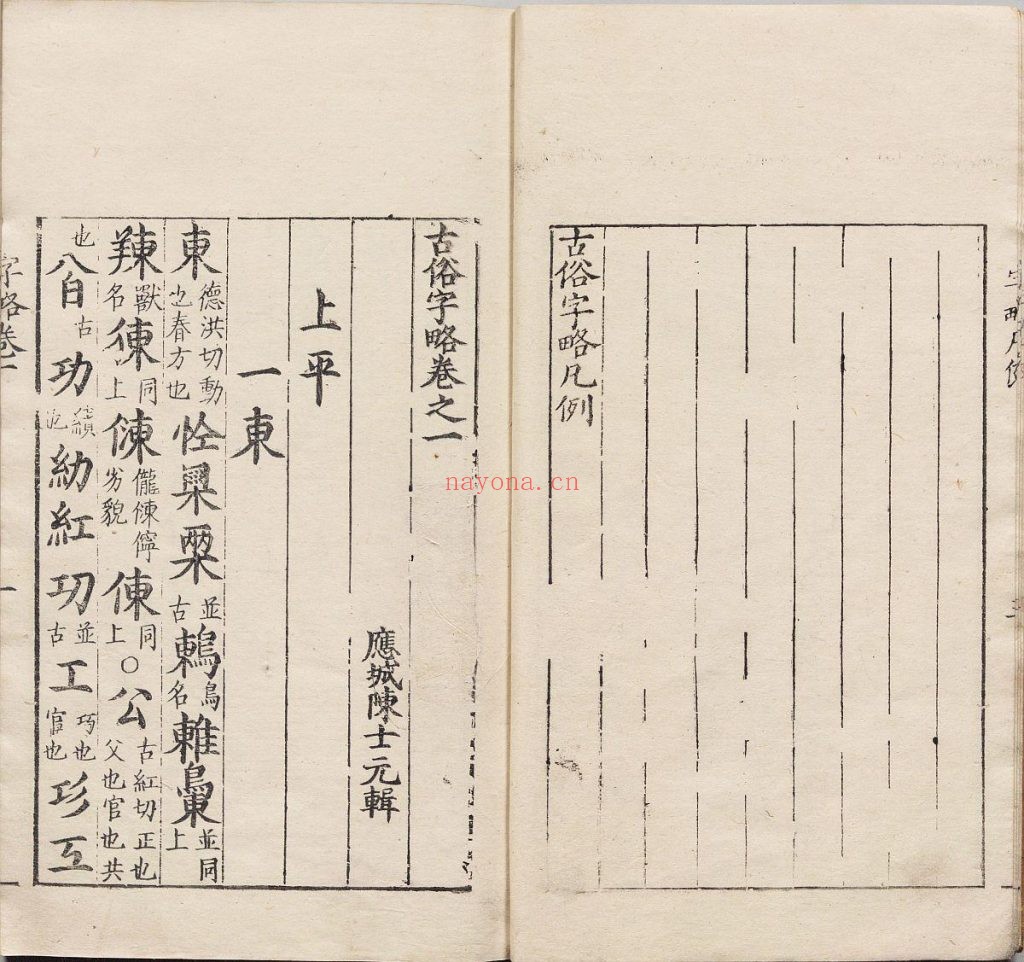 古俗字略凡例
古俗字略卷之一
應城陳士元輯
上平
一東
東德洪切動也春方也並古鶇鳥名並同上
䍶獸名徚同上儱倲儜劣貌倲同上○公古紅切正也父也官也共
也古功績也紅㓛並古工巧也官也
字略卷一
nayona.cn